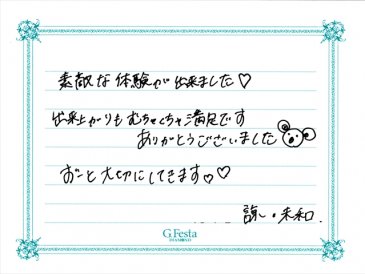 素敵な体験が出来ました♡
出来上がりもむちゃくちゃ満足です
ありがとうございました
ずっと大切にしてきます♡♡
諒・未和
G.Festa
DIAMOND